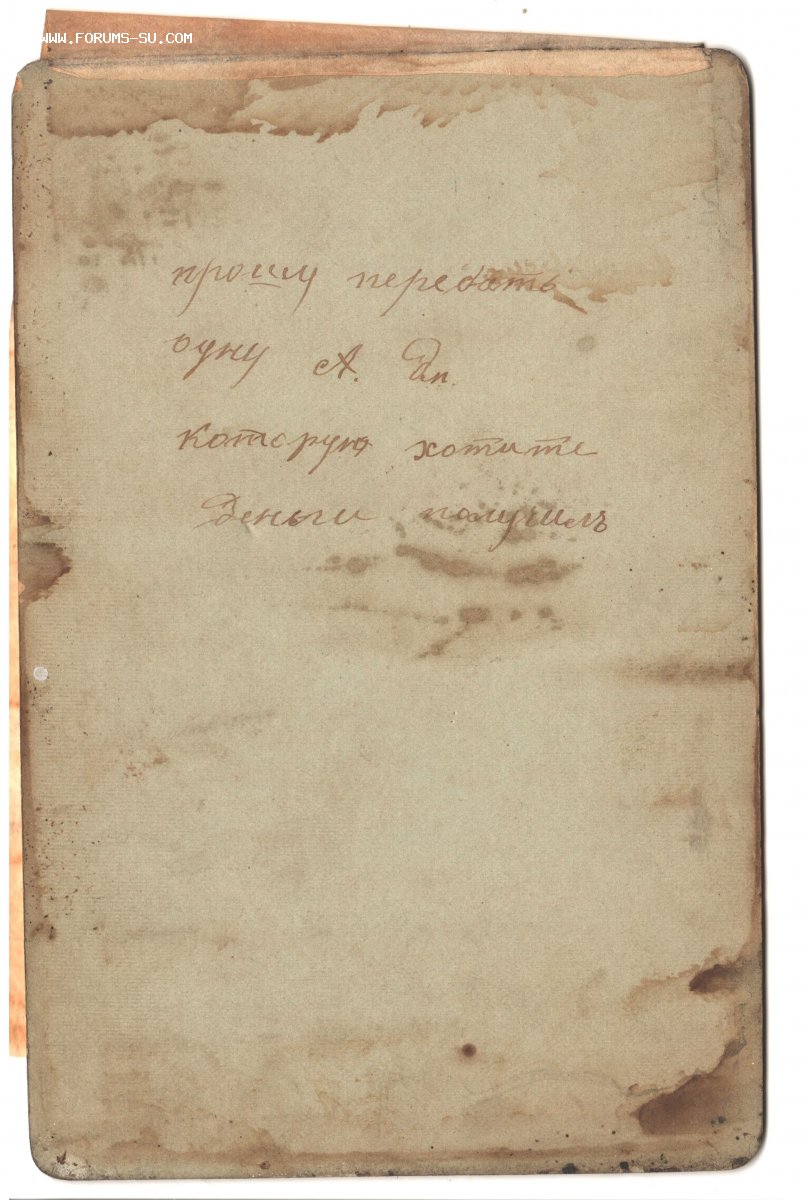 WWW.FORUMS-SU.COM
прошу передать
одну А. Дп.
которую хотите
Деньги получилъ